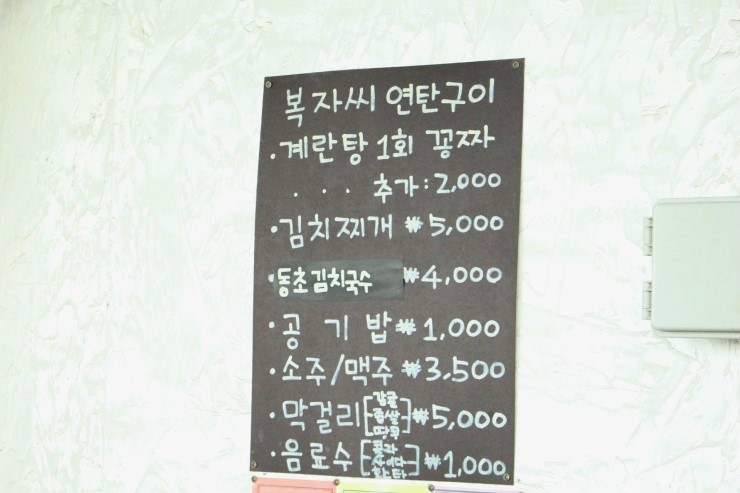 복자씨 연탄구이
·계란탕 1회 꽁짜
· · · 추가:2,000
·김치찌개 ₩5,000
·동초김치국수 ₩4,000
·공기밥 ₩1,000
·소주/맥주 ₩3,500
·막걸리[감귤 좁쌀 땅콩]₩5,000
·음료수[콜라 사이다 환타]₩1,000